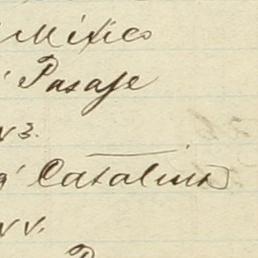 Mexico
Pasaje
v 3.
Catalina
v v.